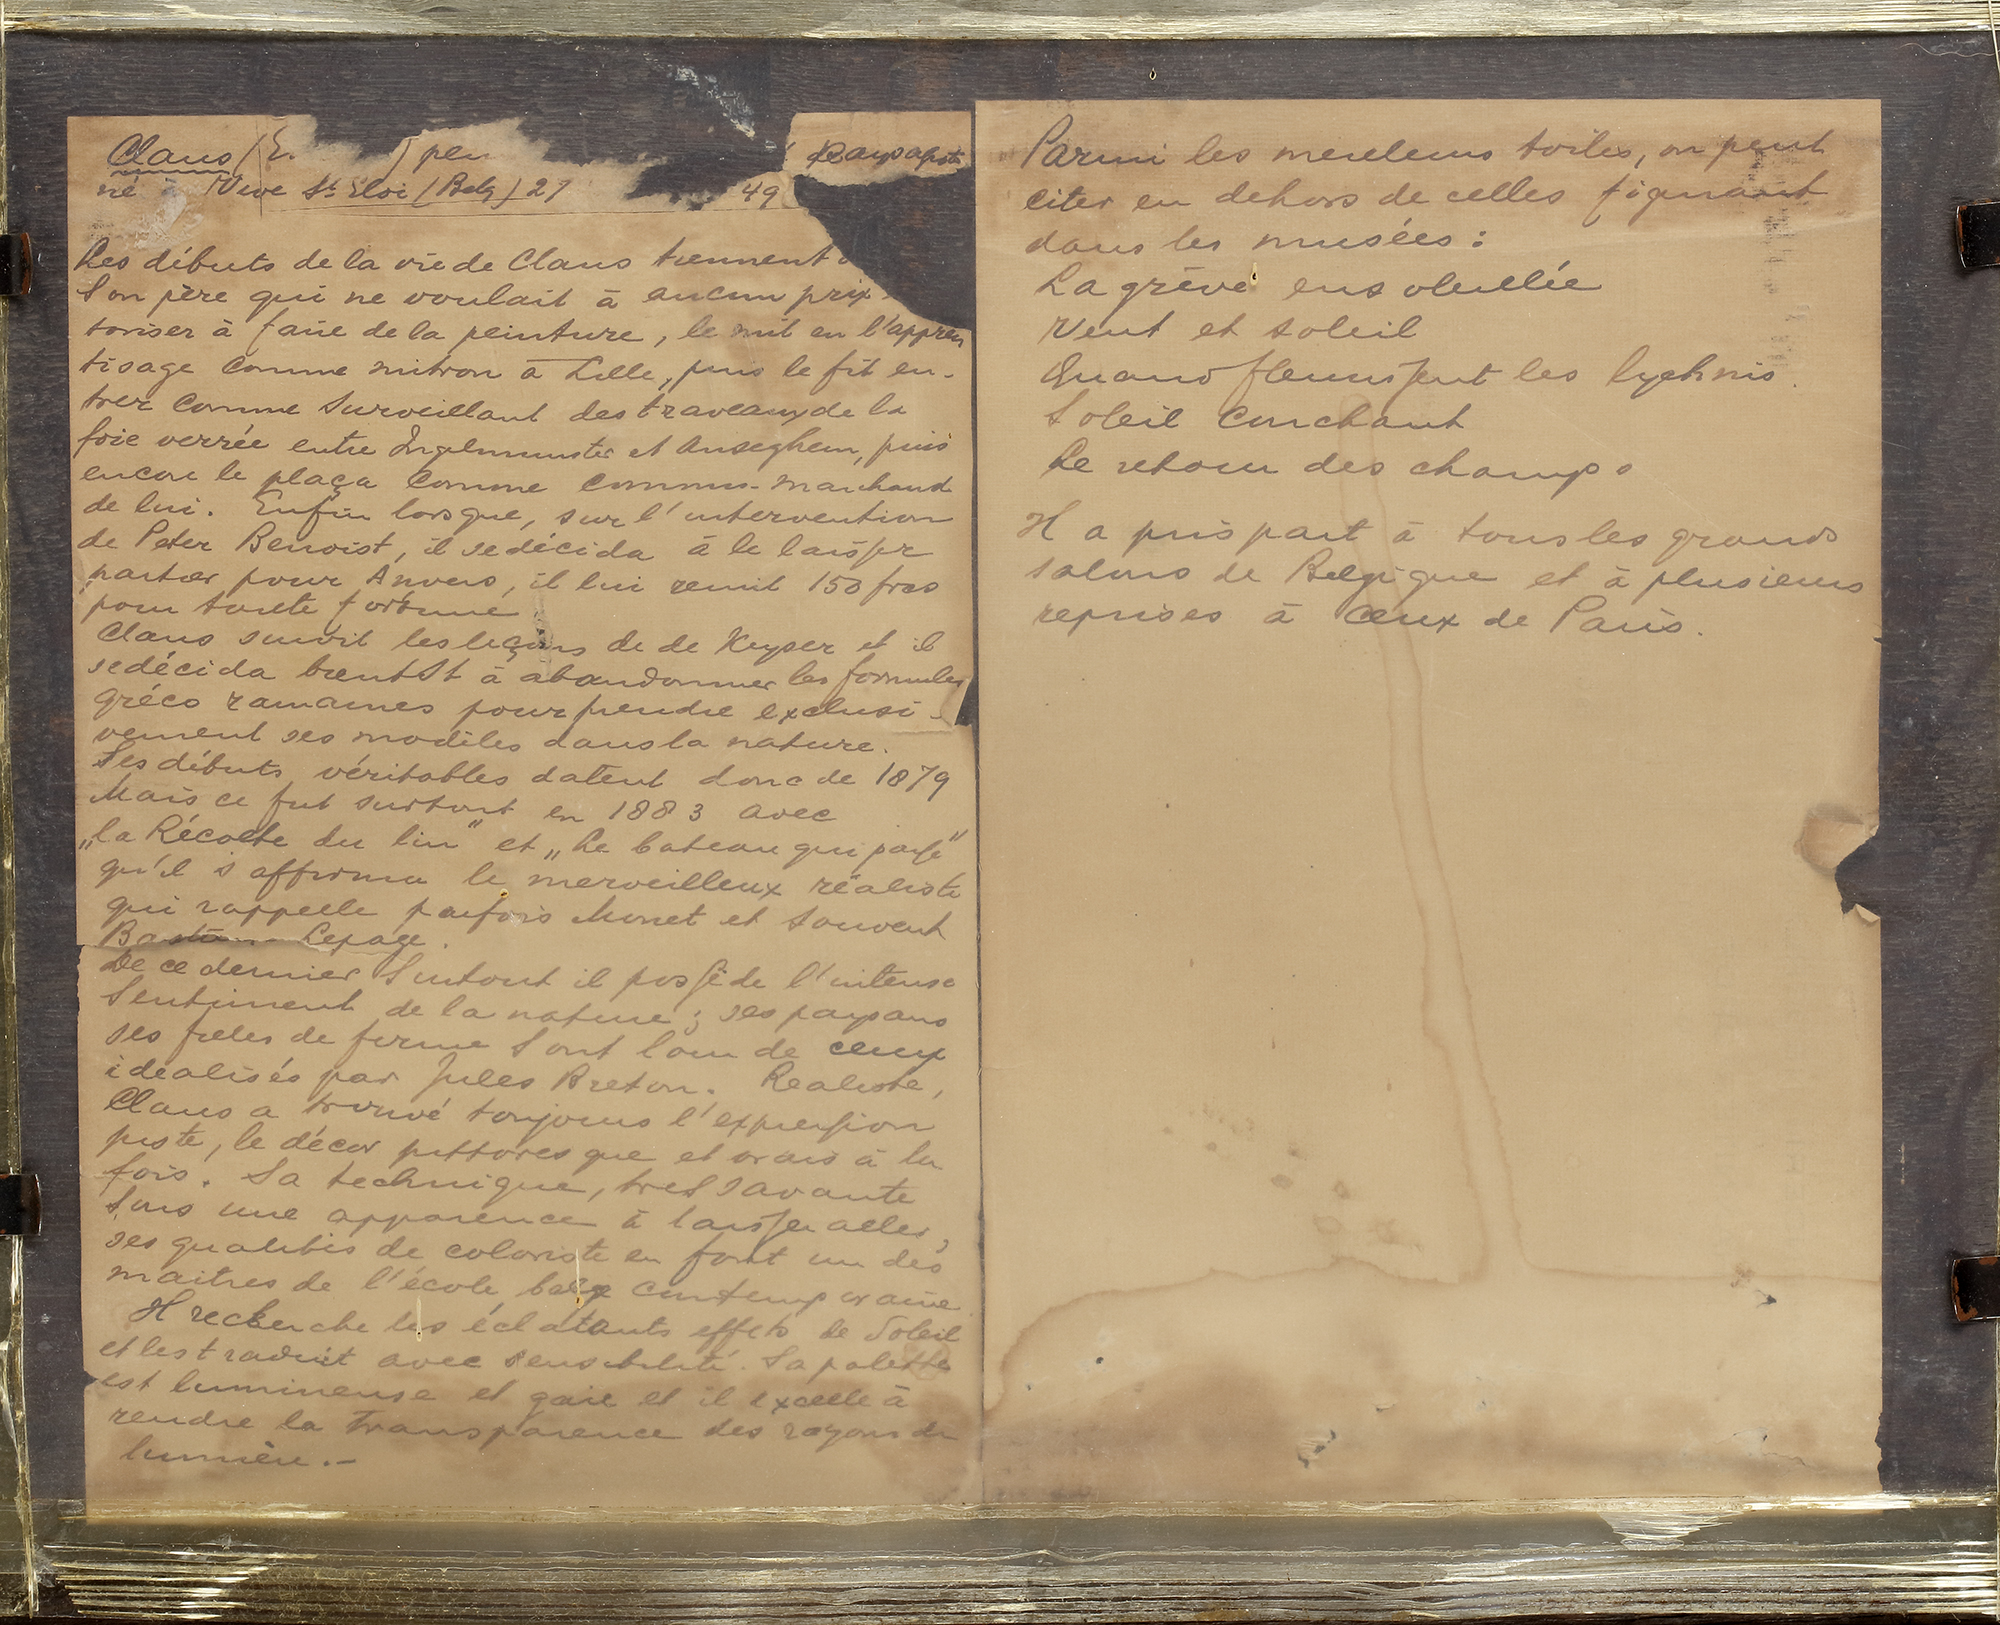 Claus (E. ) pein Paysagiste
né à Vive St Eloi (Belg) 27 49
Les débuts de la vie de Claus tiennent
Son père qui ne voulait à aucun prix
toriser à faire de la peinture, le mit en l'appren
tisage comme mitron à Lille, puis le fit en-
trer comme surveillant des travaux de la
foie verrée entre Ingelmunster et Anseghem, puis
encore le plaça comme commis-marchand
de lin. Enfin lorsque, sur l'intervention
de Peter Benoist, il se décida à le laisser
partir pour Anvers, il lui remit 150 frcs
pour toute fortune
Claus suivit les leçons de de Keyser et il
se décida bientôt à abandonner les formules
gréco romaines pour prendre exclusi-
vement ses modèles dans la nature.
Ses débuts véritables datent donc de 1879
Mais ce fut surtout en 1883 avec
„la Récolte du lin" et „Le bateau qui passe"
qu'il s'affirma le merveilleux réaliste
qui rappelle parfois Monet et souvent
Bastien Lepage.
De ce dernier surtout il possède l'intense
Sentiment de la nature; ses paysans
ses filles de ferme sont loin de ceux
idéalisés par Jules Breton. Realiste,
Claus a trouvé toujours l'expression
juste, le décor pittoresque et vrais à la
fois. Sa technique, très savante
sous une apparence à laisser aller,
ses qualités de coloriste en font un des
maitres de l'école belge contemporaine.
Il recherche les éclatants effets de Soleil
et les traduit avec sensibilité. Sa palette
est lumineuse et gaie et il excelle à
rendre la transparence des rayons de
lumière.-
Parmi les meilleurs toiles, on peut
citer en dehors de celles figurant
dans les musées :
La grève ensoleillée
Vent et soleil
Quand fleurissent les lychnis.
Soleil couchant
Le retour des champs
Il a pris part à tous les grands
salons de Belgique et à plusieurs
reprises à ceux de Paris.